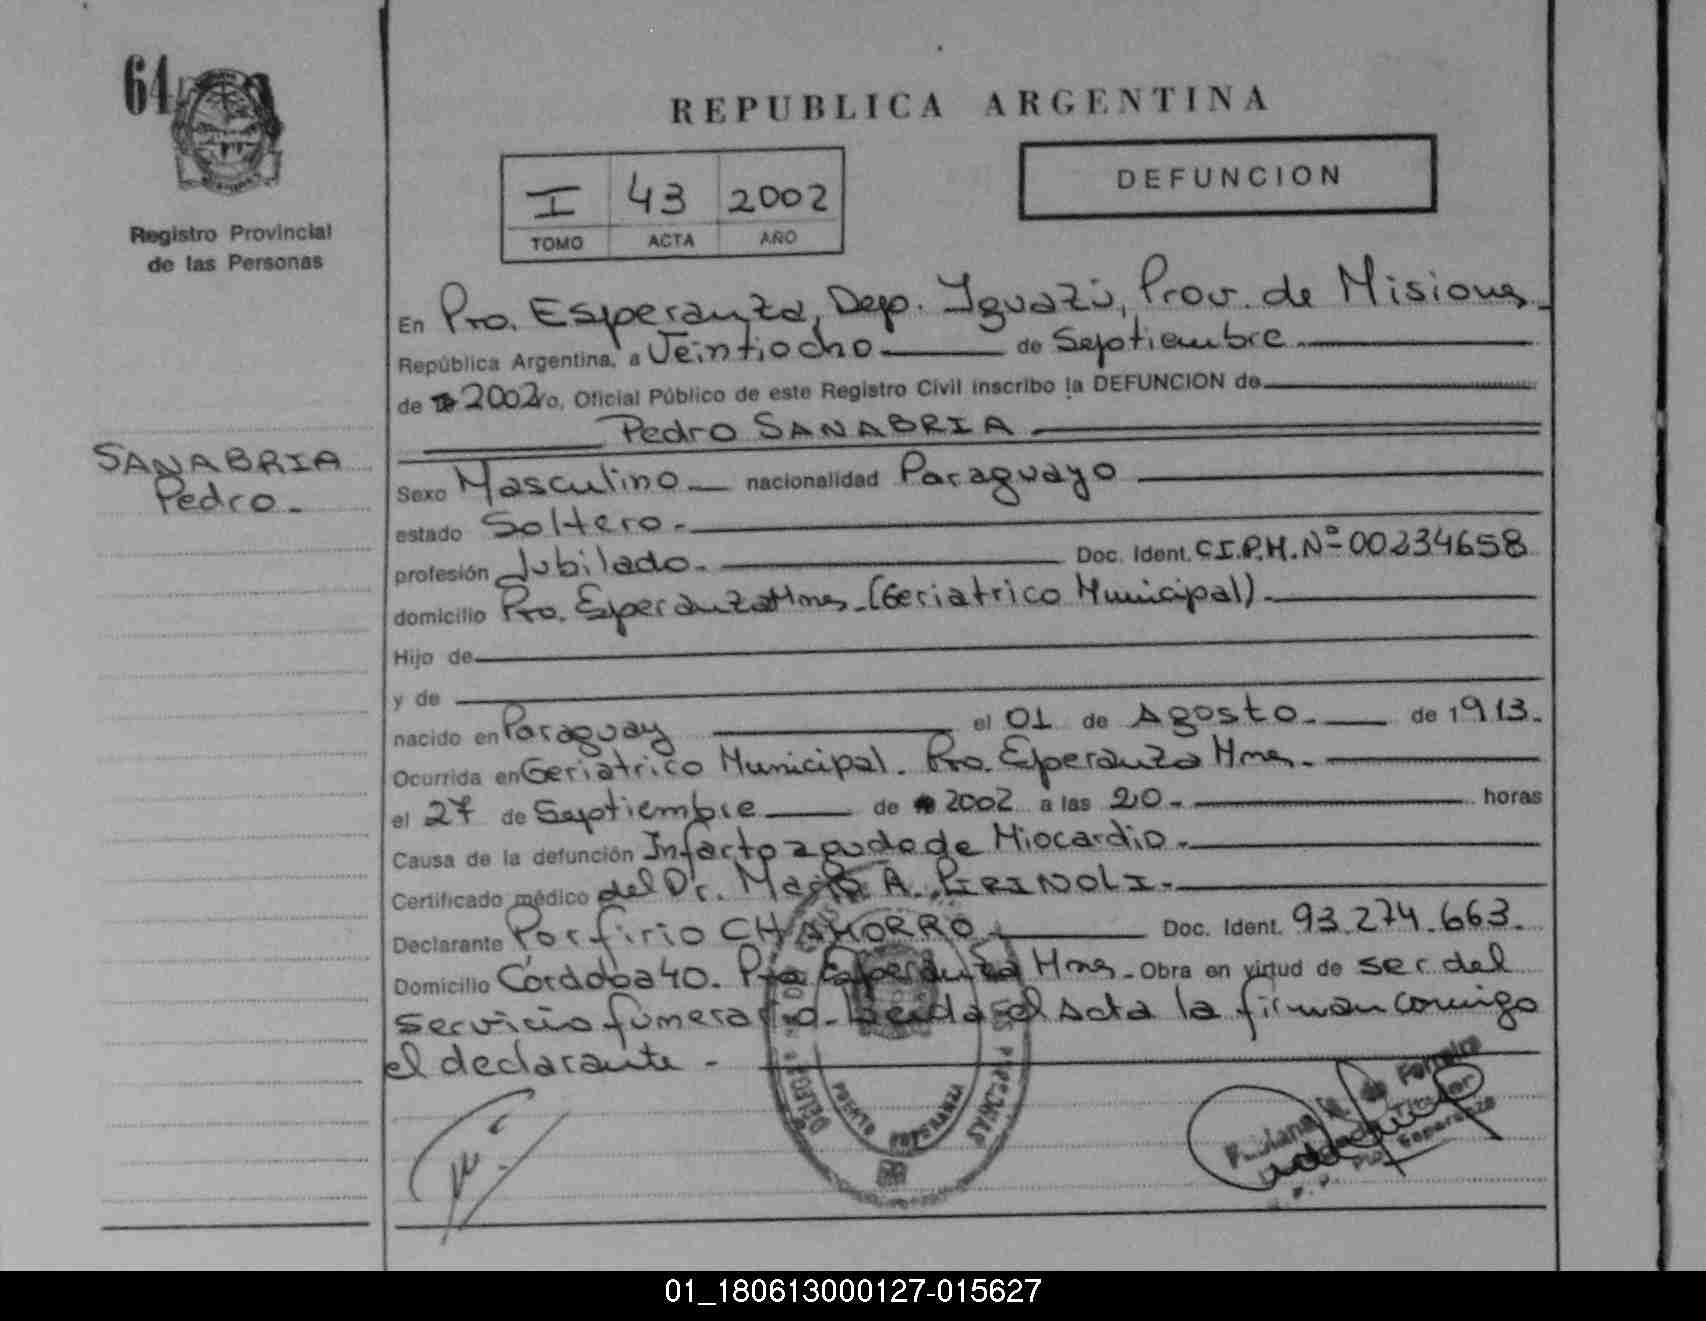 64
REPUBLICA ARGENTINA
DEFUNCION
I 43 2002
TOMO ACTA AÑO
Registro Provincial
de las Personas
SANABRIA
Pedro.-
En Pto. Esperanza, Dep. Iguazú, Prov. de Misiones
República Argentina, a Veintiocho de Septiembre
de 2002 yo, Oficial Público de este Registro Civil inscribo la DEFUNCION de
Pedro SANABRIA
Sexo Masculino nacionalidad Paraguayo
estado Soltero.-
profesión Jubilado.- Doc. Ident. C.I.P.M. Nº 00234658
domicilio Pto. Esperanza Mnes.-(Geriatrico Municipal).-
Hijo de
y de
nacido en Paraguay el 01 de Agosto.- de 1913.
Ocurrida en Geriatrico Municipal. Pto. Esperanza Mnes.-
el 27 de Septiembre de 2002 a las 20.- horas
Causa de la defunción Infarto agudo de Miocardio.-
Certificado médico del Dr. A. PIRINOLI.-
Declarante Porfirio CHAMORRO Doc. Ident. 93.274.663.
Domicilio Córdoba 40. Pto Esperanza Mnes.- Obra en virtud de ser del
servicio funerario.- Leida el Acta la firman conmigo
el declarante.-
PUERTO ESPERANZA
de Ferreira
Titular
Pto. Esperanza
01_180613000127-015627